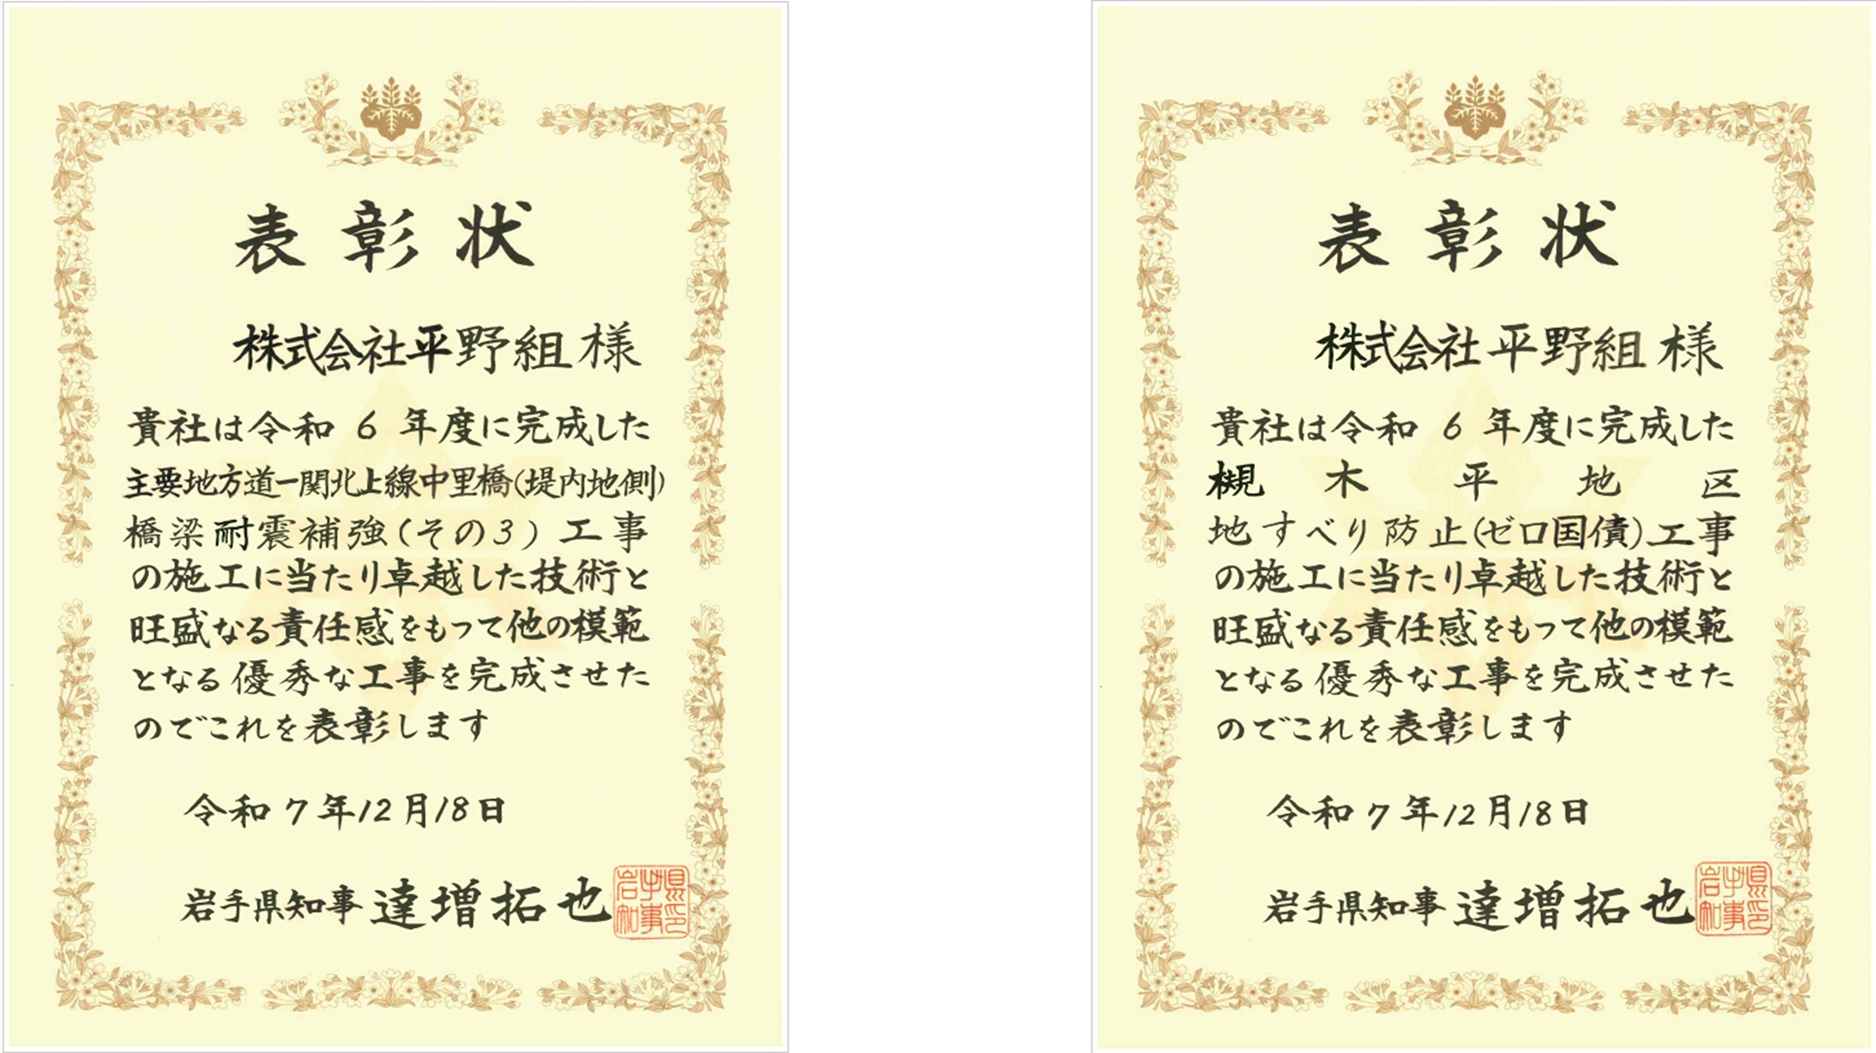 表彰状
株式会社平野組様
貴社は令和6年度に完成した
主要地方道一関北上線中里橋(堤内地側)
橋梁耐震補強(その3)工事
の施工に当たり卓越した技術と
旺盛なる責任感をもって他の模範
となる優秀な工事を完成させた
のでこれを表彰します
令和7年12月18日
岩手県知事 達増拓也
岩手県知事印
表彰状
株式会社平野組様
貴社は令和6年度に完成した
槻木平地区
地すべり防止(ゼロ国債)工事
の施工に当たり卓越した技術と
旺盛なる責任感をもって他の模範
となる優秀な工事を完成させた
のでこれを表彰します
令和7年12月18日
岩手県知事 達増拓也
岩手県知事印